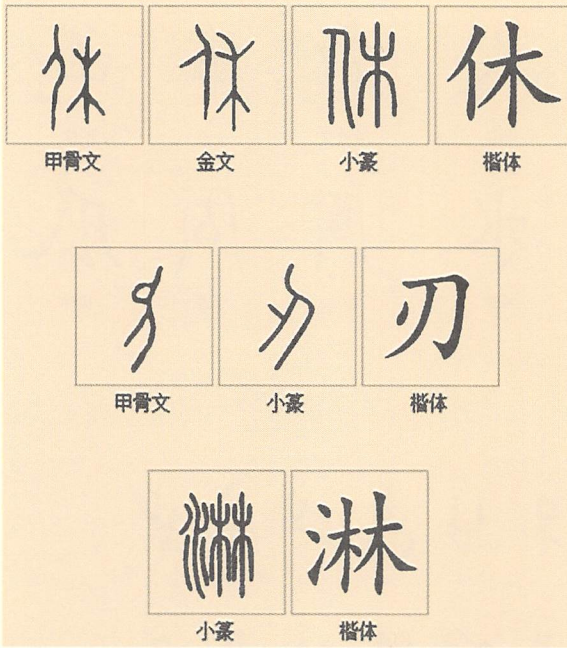 休 休 休 休
甲骨文 金文 小篆 楷体
刃 刃 刃
甲骨文 小篆 楷体
淋 淋
小篆 楷体